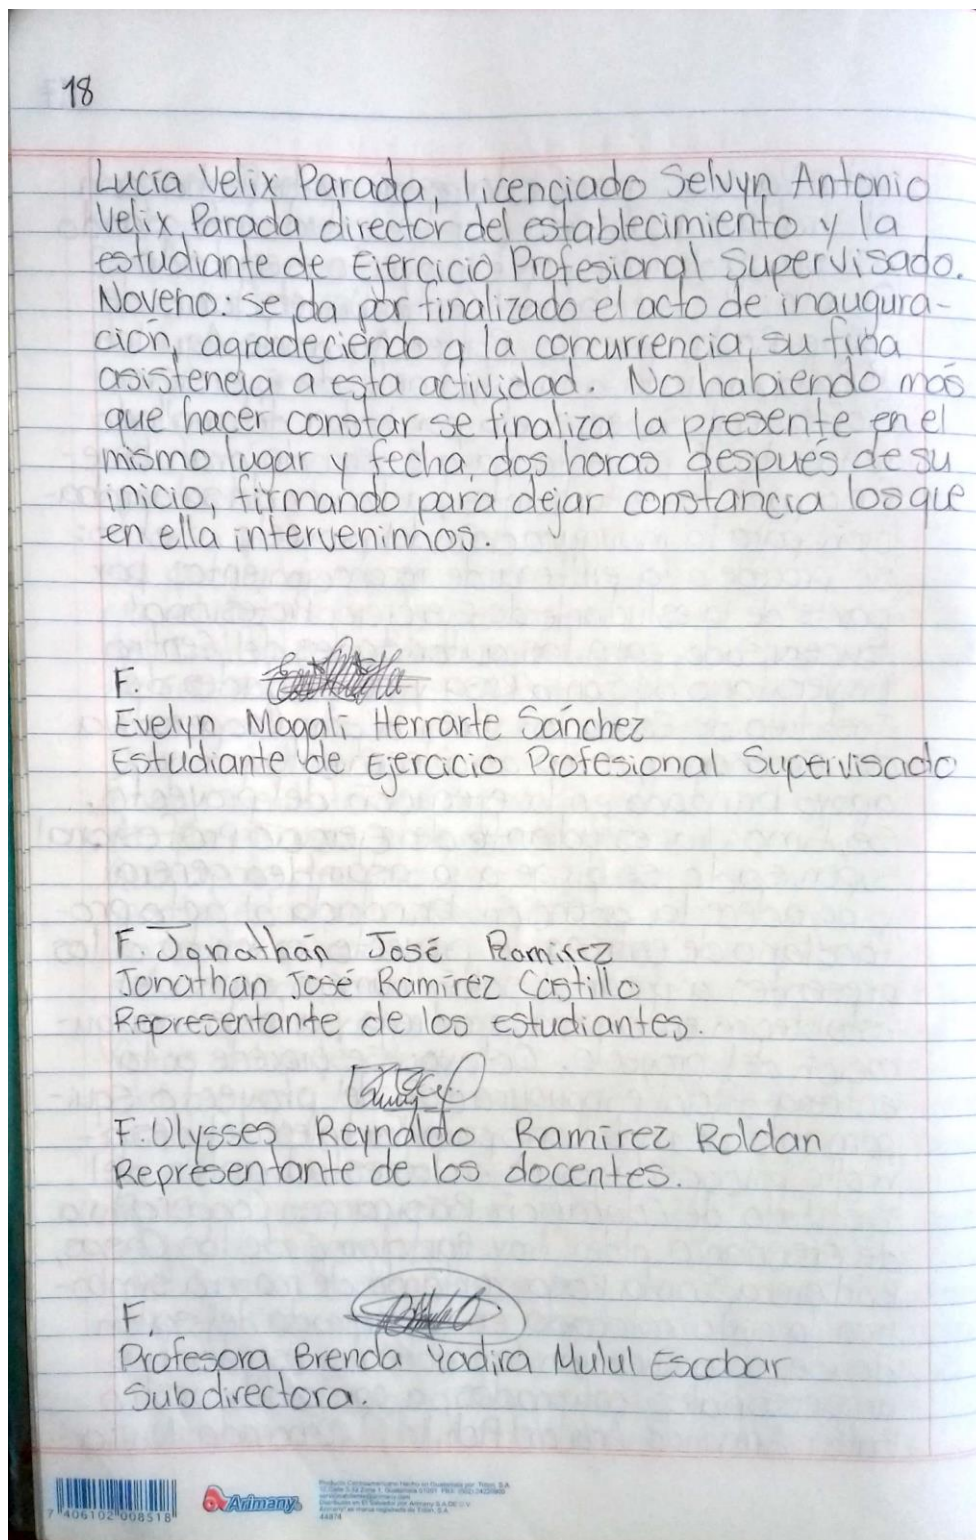 18
Lucía Velix Parada, licenciado Selvyn Antonio
Velix Parada director del establecimiento y la
estudiante de Ejercicio Profesional Supervisado.
Noveno: se da por finalizado el acto de inaugura-
ción, agradeciendo a la concurrencia su fina
asistencia a esta actividad. No habiendo más
que hacer constar se finaliza la presente en el
mismo lugar y fecha, dos horas después de su
inicio, firmando para dejar constancia los que
en ella intervenimos.
F.
Evelyn Magali Herrarte Sánchez
Estudiante de Ejercicio Profesional Supervisado
F. Jonathán José Ramírez
Jonathan José Ramírez Castillo
Representante de los estudiantes.
F. Ulysses Reynaldo Ramirez Roldan
Representante de los docentes.
F.
Profesora Brenda Yadira Mulul Escobar
Subdirectora.
7 406102 008518
Arimany